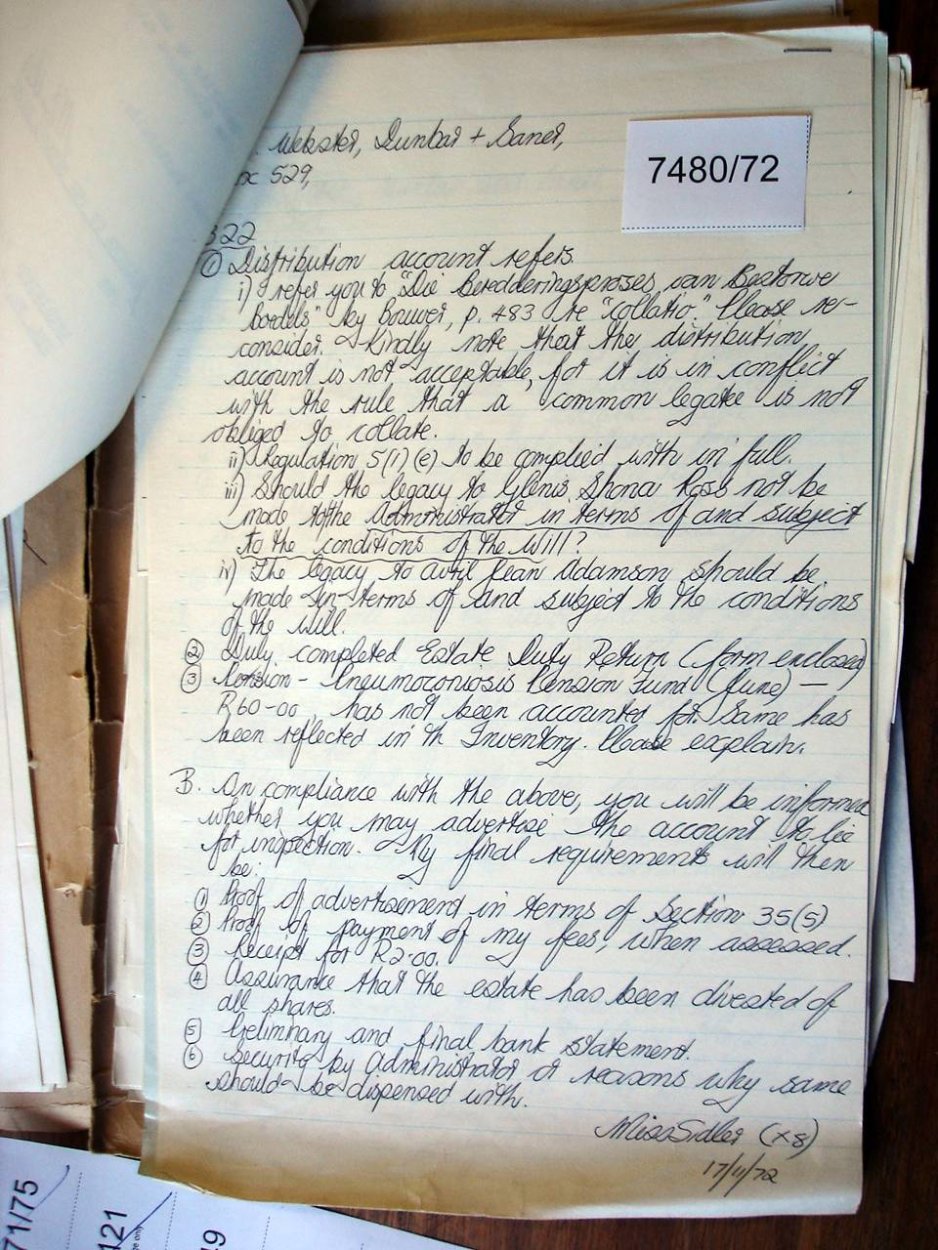 Webster, Dunbar + Saner,
7480/72
529,
322
① Distribution account refers.
i) I refer you to "Die Beredderingsproses van Bestorwe
Boedels" by Bouwer, p. 483 re "collatio." Please re-
consider. Kindly note that the distribution
account is not acceptable, for it is in conflict
with the rule that a common legatee is not
obliged to collate.
ii) Regulation 5(1)(e) to be complied with in full.
iii) Should the legacy to Glenis Shona Ross not be
made to the Administrator in terms of and subject
to the conditions of the will?
iv) The legacy to Avril Jean Adamson should be
made in terms of and subject to the conditions
of the will.
② Duly completed Estate Duty Return (form enclosed)
③ Pension - Pneumoconiosis Pension Fund (June) —
R60-00 has not been accounted for. Same has
been reflected in th Inventory. Please explain.
B. On compliance with the above, you will be informed
whether you may advertise the account to lie
for inspection. My final requirements will then
be:
① Proof of advertisement in terms of Section 35(5)
② Proof of payment of my fees, when assessed.
③ Receipt for R2.00.
④ Assurance that the estate has been divested of
all shares.
⑤ Prelimnary and final bank statement.
⑥ Security by Administrator or reasons why same
should be dispensed with.
Miss Sidler (x8)
17/11/72
71/75
121
19